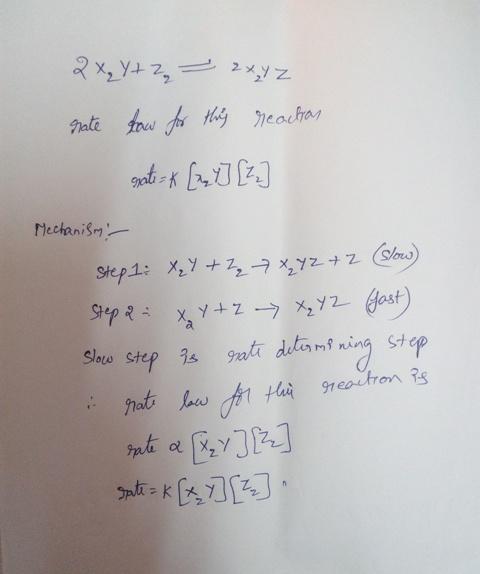 2X₂Y+Z₂ ⇌ 2X₂YZ
rate law for this reaction
rate=K[X₂Y][Z₂]
Mechanism:-
Step1:- X₂Y+Z₂→X₂YZ+Z (Slow)
Step 2:- X₂Y+Z → X₂YZ (fast)
Slow step is rate determining step
∴ rate law for this reaction is
rate α [X₂Y][Z₂]
rate=K[X₂Y][Z₂].